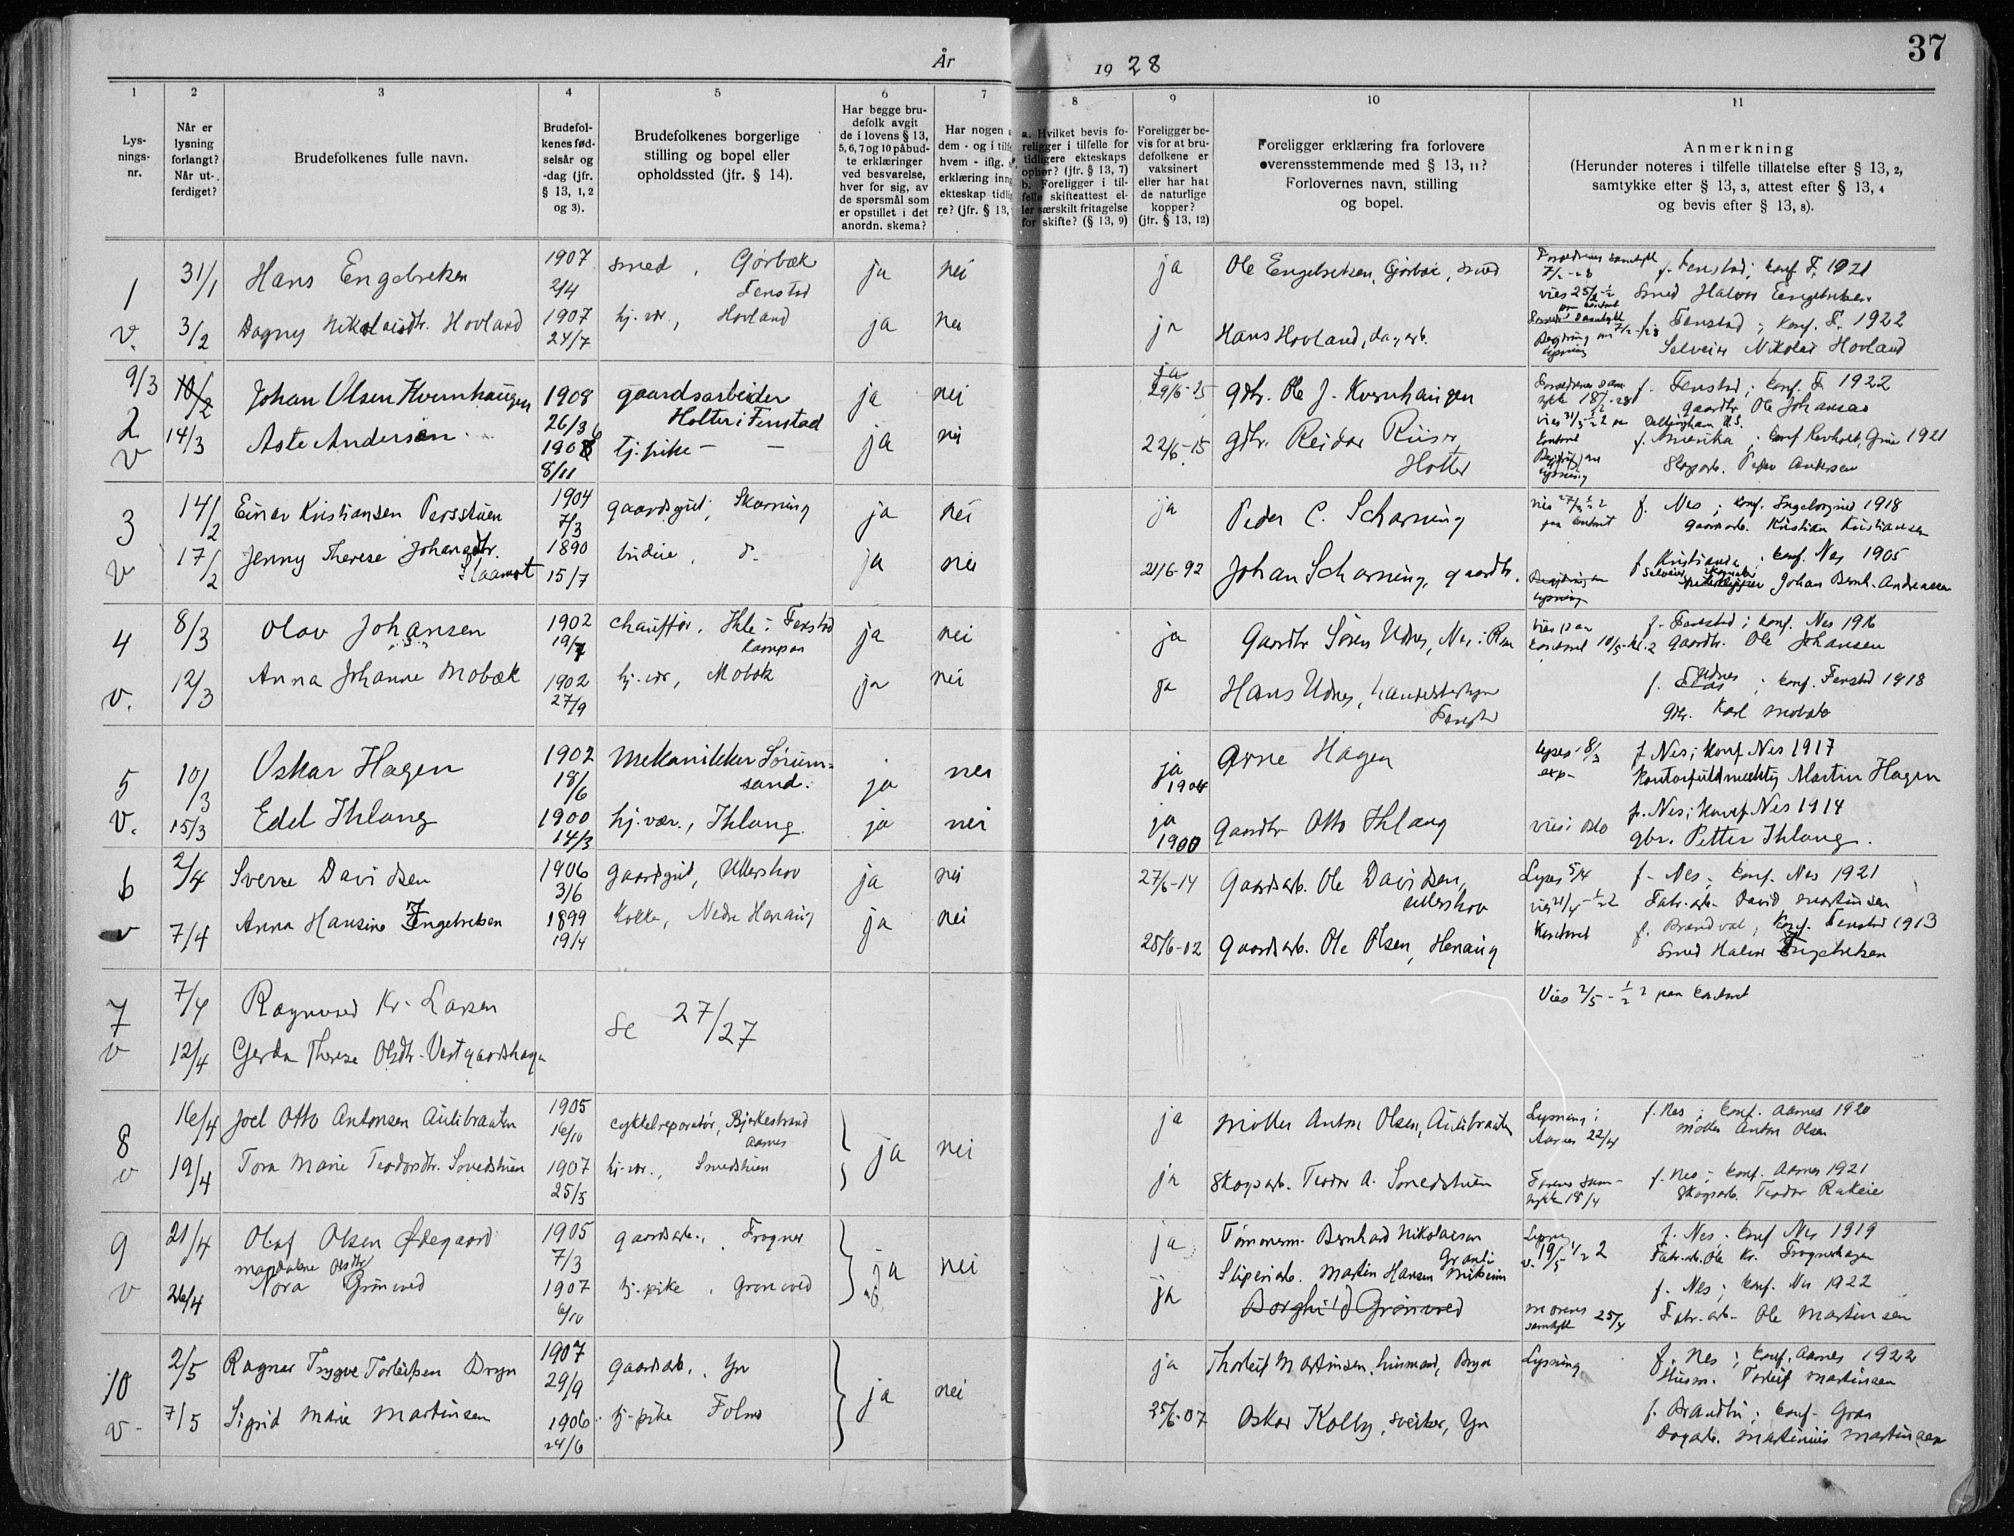 37
År 1928
1 2 3 4 5 6 7 8 9 10 11
Lys-
nings-
nr.
Når er
lysning
forlangt?
Når ut-
ferdiget?
Brudefolkenes fulle navn.
Brudefol-
kenes fød-
selsår og
-dag (jfr.
§ 13, 1, 2
og 3).
Brudefolkenes borgerlige
stilling og bopel eller
opholdssted (jfr. § 14).
Har begge bru-
defolk avgit
de i lovens § 13,
5, 6, 7 og 10 påbud-
te erklæringer
ved besvarelse,
hver for sig, av
de spørsmål som
er opstillet i det
anordn. skema?
Har nogen
dem - og i tilf
hvem - iflg.
erklæring inng
ekteskap tidli
re? (jfr. § 13,
a. Hvilket bevis fo-
religger i tilfelle for
tidligere ekteskaps
ophør? (jfr. § 13, 7)
b. Foreligger i til-
felle skifteattest el-
ler særskilt fritagelse
for skifte? (§ 13, 9)
Foreligger be-
vis for at bru-
defolkene er
vaksinert
eller har hat
de naturlige
kopper?
(jfr. § 13, 12)
Foreligger erklæring fra forlovere
overensstemmende med § 13, 11?
Forlovernes navn, stilling
og bopel.
Anmerkning
(Herunder noteres i tilfelle tillatelse efter § 13, 2,
samtykke efter § 13, 3, attest efter § 13, 4
og bevis efter § 13, 8).
1 31/1 Hans Engebretsen 1907 2/4 smed, Gorbæk Fenstad ja nei ja Ole Engebretsen, smed f. Fenstad; conf F. 1921
Smed Halvor Engebretsen
v. 3/2 Dagny Nikolaisdtr. Hovland 1907 24/7 hj. vær., Hovland ja nei ja Hans Hovland, dagarb. f. Fenstad; conf. F. 1922
Selveier Nikolai Hovland
2 9/3 10/2 Johan Olsen Kvernhaugen 1908 26/3 gaardsarbeider Holter i Fenstad ja nei 29/6-25 gdbr. Ole J. Kvernhaugen f. Fenstad; conf. F. 1922
gaardbr. Ole Johansen
v 14/3 Aste Andersen 1906 8/11 tj. pike - - ja nei 22/6-15 gdbr. Reidar Riiser, Holter f. Amerika; conf 1921
Skogarb. Peder Andersen
3 14/2 Einar Kristiansen Persstuen 1904 7/3 gaardsgut, Skarning ja nei ja Peder C. Scharning vies 27/3 paa kontoret f. Nes; conf. 1918
gaardarb. Kristian Kristiansen
v 17/2 Jenny Therese Johansdtr. Slaamot 1890 15/7 budeie, d- ja nei 21/6-92 Johan Scharning, gaardbr. f. Kristiania; conf. Nes 1905
Johan Bernh. Andreassen
4 8/3 Olav Johansen 1902 chauffør, Ihle i Fenstad ja nei ja Gaardbr Søren Udnes, Nes f. Fenstad; conf. Nes 1916
gaardbr. Ole Johansen
v. 12/3 Anna Johanne Mobæk 1902 27/9 hj. vær, Mobæk ja nei ja Hans Udnes, f. Udnes; conf. Fenstad 1918
gbr. Karl Mobæk
5 10/3 Oskar Hagen 1902 18/6 Mekanikker Sørum-
sand. ja nei ja 1904 Arne Hagen lyses 18/3 f. Nes; Konf. Nes 1917
Kontorfuldmektig Martin Hagen
v. 15/3 Edel Ihlang 1900 14/3 hj. vær., Ihlang ja nei ja 1900 Gaardbr Otto Ihlang vies i Oslo f. Nes; Konf. Nes 1914
gbr. Petter Ihlang.
6 2/4 Sverre Davidsen 1906 3/6 gaardsgut, Ullershov ja nei 27/6-14 Gaardsarb. Ole Davidsen, Ullershov Lyses 5/4 f. Nes; conf. Nes 1921
Fabr. arb. David Martinsen
v 7/4 Anna Hansine Engebretsen 1899 19/4 Kokke, Nedre Henaug ja nei 28/6-02 Gaardsarb. Ole Olsen, Henaug Kontoret f. Brandval; conf. Fenstad 1913
Smed Halvor Engebretsen
7 7/4 Ragnvard Kr. Larsen Se 27/27 Vies 2/5 - 1/2 2 paa kontoret
v 12/4 Gerda Therese Olsdtr. Vestgaardshagen
8 16/4 Joel Otto Antonsen Aulibraaten 1905 16/10 cykkelreparatør, Bjerkestrand Aarnes ja nei ja Møller Anton Olsen, Aulibraaten Lysning i Aarnes 22/4 f. Nes; conf. Aarnes 1920
Møller Anton Olsen
v 19/4 Tora Marie Teodorsdtr. Smedstuen 1907 25/5 hj. vær., Smedstuen ja Skogsarb. Teodor A. Smedstuen samtykke 18/4 f. Nes; conf. Aarnes 1921
Skogsarb. Teodor Rakeie
9 21/4 Olaf Olsen Ødegaard 1905 7/3 gaardsarb., Frogner ja nei ja Tømmerm. Bernhard Nikolaisen v. 19/5 1/2 2 f. Nes. conf Nes 1919
Fabr. arb. Ole Kr. Frognerhagen
v 26/4 Magdalene Olsdtr Nora Grønved 1907 6/10 tj. pike, Grønved ja Sliperiarb. Martin Hansen
Borghild Grønved Morens samtykke 25/4 f. Nes; conf. Nes 1922
Fabr. arb. Ole Martinsen
10 2/5 Ragnar Trygve Torleifsen Dryn 1907 29/9 gaardsarb., Yn ja nei ja Thorleif Martinsen, husmand, Dryn Lysning f. Nes; conf. Aarnes 1922
Husm. Torleif Martinsen
v. 7/5 Sigrid Marie Martinsen 1906 24/6 tj. pike 25/6-07 Oskar Kolby, sveiser, Yn f. Brandbu; conf. Gran
Dagarb. Martinius Martinsen